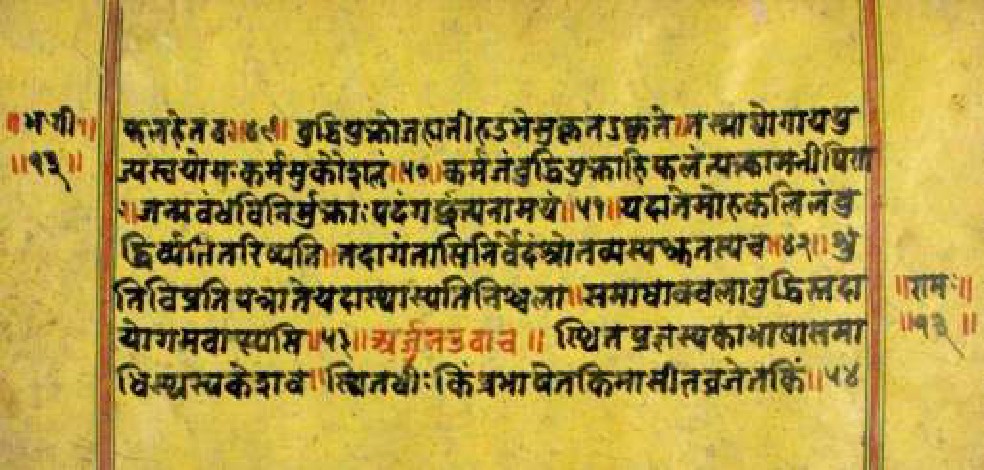 ॥भ॰गी॥
॥१३॥
फलहेतवः॥४९॥बुद्धियुक्तोजहातीहउभेसुकृतदुष्कृते॥तस्माद्योगाययु
ज्यस्वयोगःकर्मसुकौशलं॥५०॥कर्मजंबुद्धियुक्ताहिफलंत्यक्त्वामनीषिणः
॥जन्मबंधविनिर्मुक्ताःपदंगछंत्यनामयं॥५१॥यदातेमोहकलिलंबु
द्धिर्व्यतितरिष्यति॥तदागंतासिनिर्वेदंश्रोतव्यस्यश्रुतस्यच॥५२॥श्रु
तिविप्रतिपन्नातेयदास्थास्यतिनिश्चला॥समाधावचलाबुद्धिस्तदा
योगमवाप्स्यसि॥५३॥अर्जुनउवाच॥स्थितप्रज्ञस्यकाभाषासमा
धिस्थस्यकेशव॥स्थितधीःकिंप्रभाषेतकिमासीतव्रजेतकिं॥५४
॥रामः॥
॥१३॥